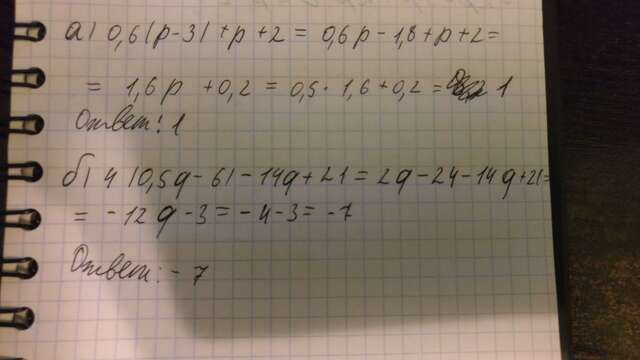 а) 0,6(p-3)+p+2= 0,6p-1,8+p+2=
= 1,6p +0,2 = 0,5·1,6+0,2 = 1
Ответ: 1
б) 4(0,5q-6)-14q+21=2q-24-14q+21=
= -12q-3=-4-3=-7
Ответ: -7